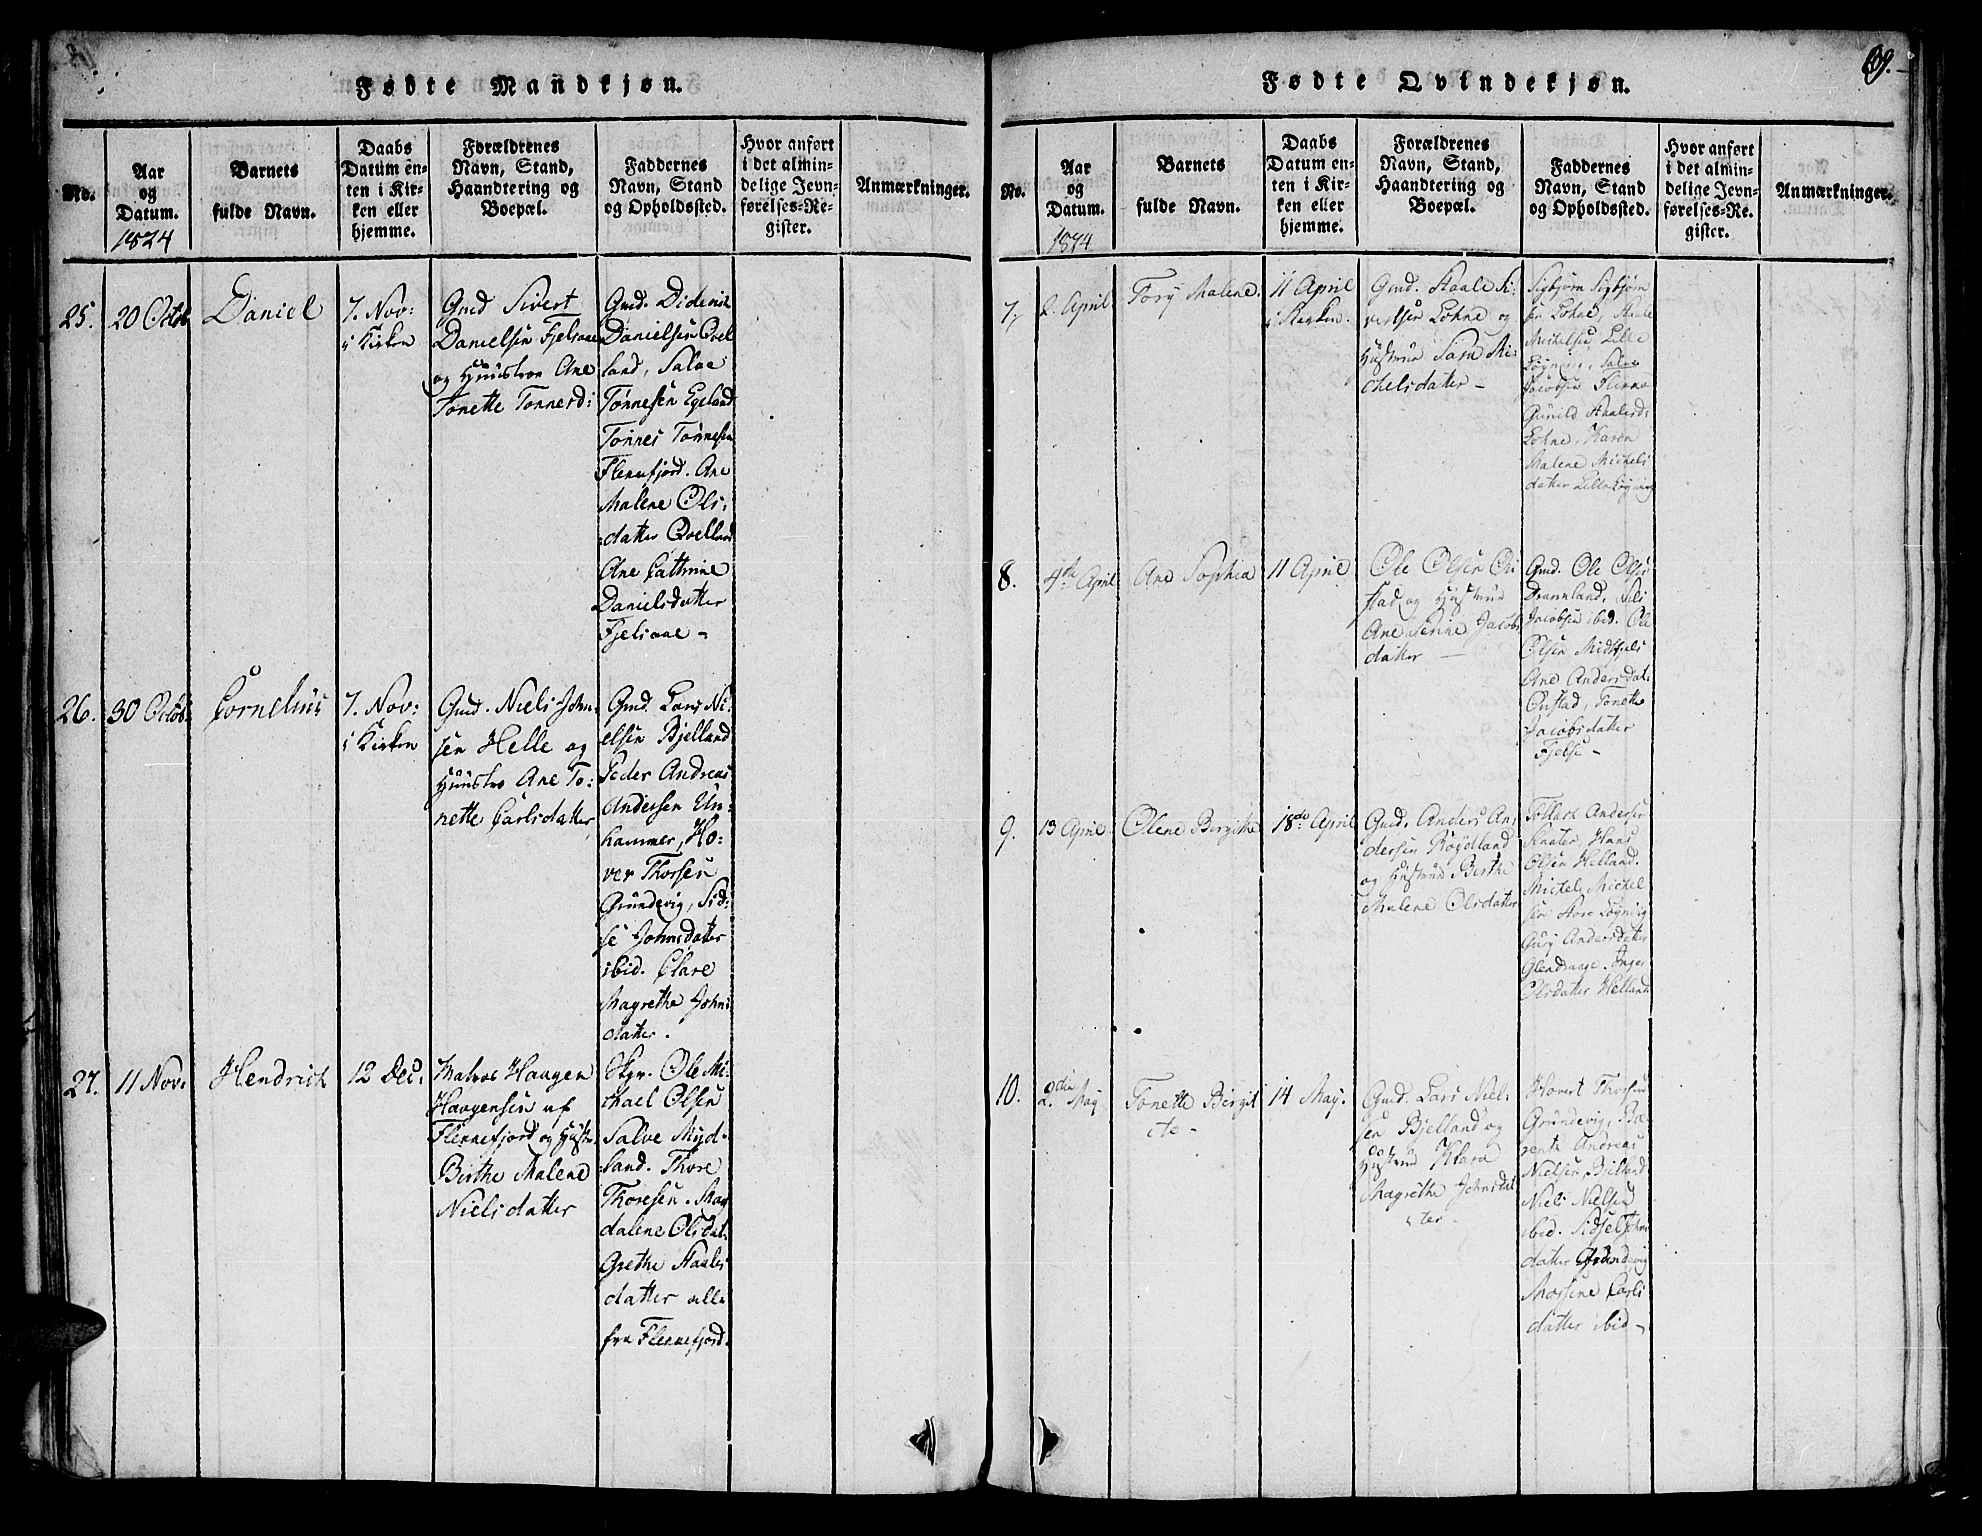 Fødte Mandkjøn.
No.
Aar
og
Datum.
1824
Barnets
fulde Navn.
Daabs
Datum en-
ten i Kir-
ken eller
hjemme.
Forældrenes
Navn, Stand,
Haandtering og
Boepæl.
Faddernes
Navn, Stand
og Opholdssted.
Hvor anført
i det almin-
delige Jevn-
førelses-Re-
gister.
Anmærkninger.
25.
20 Octob
Daniel
7. Nov:
i Kirken
Gmd Sivert
Danielsen Fjelsaae
og Hustroe Ane
Tonette Tonnesd:
Gmd. Diderich
Danielsen Qvel
land, Salve
Tønnesen Egeland
Tønnes Tønnesen
Flennefjord. Ane
Malene Ols:
datter Qvelland
Ane Cathrine
Danielsdatter
Fjelsaae -
26.
30 Octob.
Cornelius
7. Nov:
i Kirken
Gmd. Niels John
sen Helle og
Hustro Ane To:
nette Carlsdatter
Gmd. Lars Ni:
elsen Bjelland
Peder Andreas
Andersen Un:
hammer, Ho:
ver Thorsen
Grundevig, Sid:
se Johnsdatter
ibid. Clare
Magrethe Johns
datter.
27.
11 Nov:
Hendrich
12 Dec.
Matros Haagen
Haagensen af
Flennefjord og Hustr.
Birthe Malene
Nielsdatter
Skpr. Ole Mi:
chael Olsen
Salve Myd:
land. Thore
Thoresen. Mag
dalene Olsdat.
Grethe Staales
datter alle
fra Flennefjord.
Fødte Qvindekjøn.
69.
No.
Aar
og
Datum.
1824
Barnets
fulde Navn.
Daabs
Datum en-
ten i Kir-
ken eller
hjemme.
Forældrenes
Navn, Stand,
Haandtering og
Boepæl.
Faddernes
Navn, Stand
og Opholdssted.
Hvor anført
i det almin-
delige Jevn-
førelses-Re-
gister.
Anmærkninger.
7.
2. April
Tory Malene.
11 April
i Kirken.
Gmd. Staale Si:
vertsen Lohne og
Hustrue Sara Mi:
chelsdatter -
Sigbjørn Sigbjørn
sen Lohne, Staale
Michelsen Lille
Løgning, Salve
Jacobsen
Gunild Staalesd:
Lohne. Karen
Malene Michels
datter Lille Løgning
8.
4de April
Ane Sophia
11 April
Ole Olsen On
stad og Hustrue
Ane Serine Jacobs
datter -
Gmd. Ole Ols:
Drannland. Nels
Jacobsen ibid. Ole
Olsen Midtfjels
Ane Andersdat.
Onstad, Tonette
Jacobsdatter
Fjelse -
9.
13 April
Olene Birgithe
18de April
Gmd. Anders An:
dersen Røydland
og Hustrue Birthe
Malene Olsdatter
Tollach Andersen
Skaater, Hans
Olsen Helland.
Michel Michel
sen Store Løgning
Gury Andersdatter
Glendrange. Inger
Olsdatter Helland
10.
2den May
Tonette Birgit
te -
14 May.
Gmd Lars Niel:
sen Bjelland og
Hustrue Klara
Magrethe Johnsdat
ter.
Hovert Thorsen
Grundevig,
Andreas
Nielsen Bjelland
Niels Nielsen
ibid. Sidsel Johns
datter Grundevig
Massine Carls
datter ibid -